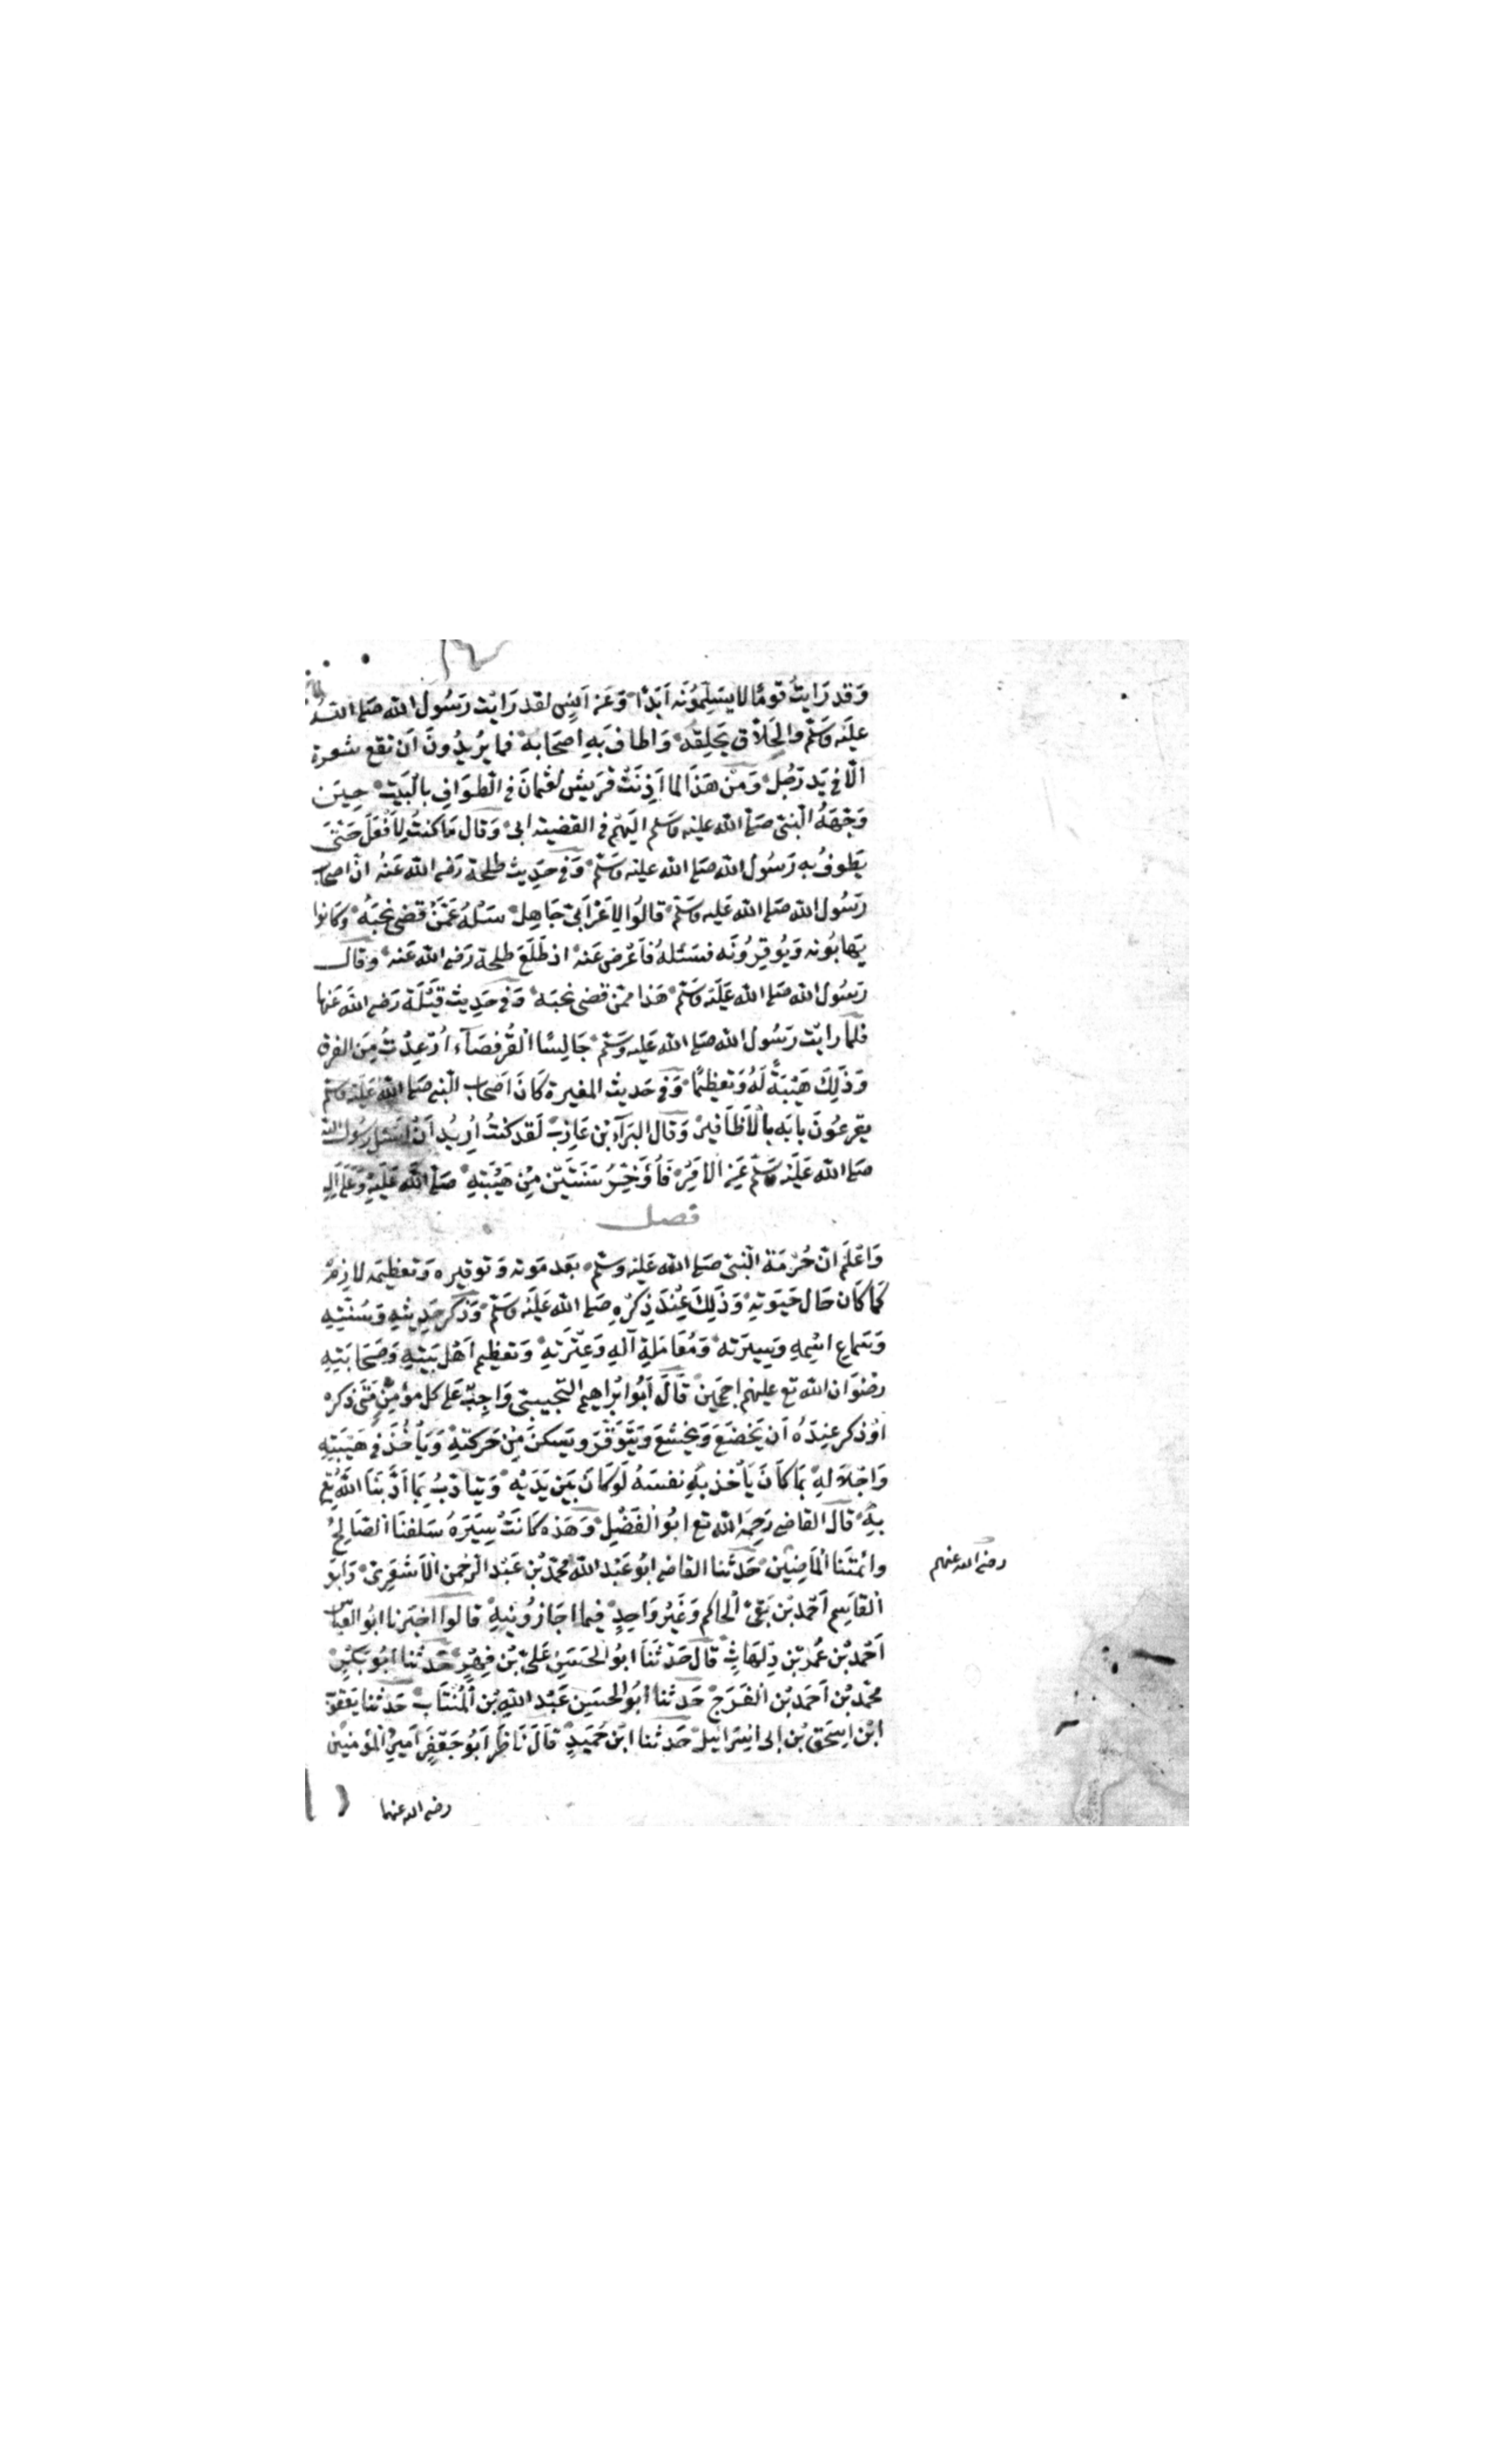 وَقد رَايتُ قومًا لا يسَلِّمُونَه اَبَدًا وَعَن اَنَسٍ لقد رَايْت رَسُول الله صَلى الله
علَيْه وَسَلّم والحَلاّق يَحلِقه وَاطاف بَهِ اصحَابه فما يرُيدُونَ اَن تقع شعرة
الّا في يَد رَجُل وَمن هَذَا لما اَذِنَتْ قُرَيشُ لعُثمانَ في الطوَافِ بالبَيت حِينَ
وَجّهَهُ النبّي صَلى الله عليْه وَسَلم اليَهْم في القضيّة ابى وَقال مَا كنتُ لِاَفْعَلَ حَتىّ
يَطوفُ بهِ رَسُول الله صَلى الله عليْه وَسَلّم وَفي حَديث طلحة رَضي الله عَنهُ انّ اصحاب
رَسُول الله صَلى الله عَليه وَسَلّم قالوُا لِاعْرَابّى جَاهِل سَئلهُ عَمّنْ قضى نحبَهُ وكانوا
يَهابُونه وَيُوقِرُونَه فسَئلهُ فاَعْرَض عَنه اذ طَلَعَ طلحة رَضي الله عَنه وقال
رَسُول الله صَلى الله عَليَه وَسَلّم هَذا ممّن قضى نحبَه وَفي حَدِيث قَيْلَة رَضي الله عَنها
فلمّا رايْت رَسُول الله صَلى الله عَليه وَسَلّم جَالِسًا القُرفصَآء اُرْعِدْتُ مِنَ الفرق
وَذَلِكَ هَيْبَةً لَهُ وَتعظيمًا وَفي حَديث المغيرة كاَنَ اَصْحاب النّبي صَلى الله عَليْه وَسَلم
يقرعُونَ بابَه بالاَظَافير وَقال البَرآء بن عَازِب لَقد كنتُ اُريُد اَنْ اَسْئل رسُول الله
صَلى الله عَليْه وَسَلّم عَن الاَمر فاُؤَخِّرُ سَنَتَيْن مِنْ هَيْبَتهِ صَلى الله عَليْهِ وَعَلى آلِهِ
فصل
وَاعْلَم انّ حُرْمَة النّبيّ صَلى الله عَليْه وسَلّم بَعد مَوته وَتوقيره وَتعظيمه لازِمٌ
كَمَا كاَن حَال حَيَوتِهِ وَذَلِكَ عِنْدَ ذِكرْهِ صَلى الله عَليْه وَسَلّم وَذكر حَدِيثهِ وَسُنَّتِهِ
وَسَماعِ اسْمِهِ وَسِيرَتهِ وَمُعَامَلةِ آلهِ وَعِتْرَتِهِ وَتعظيم اَهْل بَيتِهِ وَصَحَابَتِهِ
رضْوَان الله تع عليْهم اجمعَين قَالَ اَبُو ابْراهيم التجيبيّ وَاجِبٌ عَلى كل مؤمنٍ مَتَى ذكره
اوْ ذكر عِندَهُ اَن يَخْضَعَ وَيَخْشَعَ وَيَتَوَقّرَ وَيَسكنَ مِنْ حَركَتهِ وَيَاْخُذَ في هَيْبَتِهِ
وَاجْلاَلهِ بمَا كاَنَ يَاْخُذ بهِ نفسَهُ لَو كاَنَ بَين يَدَيْهِ وَيتَادّبُ بِمَا اَدَّبَنَا الله تع
بهِ قالَ القاضى رَحِمَه الله تع ابُو الفَضْل وَهَذه كانَتْ سِيَرَةُ سَلفنَا الصّالِح
وائمتّنَا الماضِينَ حَدّثنا القاضى ابُو عَبْد الله محمّد بْن عَبْد الرّحمن الاَشْعَرىّ وَابُو
القاَسِم اَحْمد بْن بَقىّ الحاكم وَغَيْرُ وَاحِدٍ فيما اجَازُونيهِ قالوا اخبَرنا ابُو العبّاس
اَحْمَد بْن عُمَر بْن دِلهَاثٍ قالَ حَدّثنَا ابُو الحَسَن عَليّ بْن فِهْرٍ حَدّثنا ابُو بَكرٍ
محمّد بْن اَحمَد بْن الفَرَج حَدثنا ابُو الحسَين عَبْد اللهِ بْن المنتَاب حَدثنا يَعقوب
ابْن اسحق بْن ابى اسْرَائيل حَدثنا ابْن حُمَيدٍ قالَ نَاظَر اَبُو جَعْفَر اَمير المؤمنين
رضى الله عنهم
رضى الله عنها